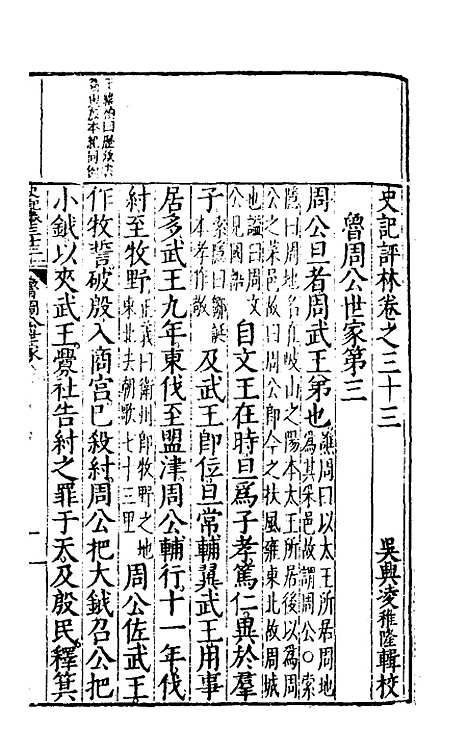 史記評林卷之三十三
吳興凌稚隆輯校
魯周公世家第三
周公旦者周武王弟也譙周曰以太王所居周地爲其采邑故謂周公○索
隱曰周地名在岐山之陽本太王所居後以爲周公之菜邑故曰周公卽今之扶風雍東北故周
也謚曰周文公見國語自文王在時旦爲子孝篤仁異於羣
子索隱曰鄒誕本孝作敬及武王卽位旦常輔翼武王用事
居多武王九年東伐至盟津周公輔行十一年伐
紂至牧野正義曰衛州卽牧野之地東北去朝歌七十三里周公佐武王
作牧誓破殷入商宮已殺紂周公把大鉞召公把
小鉞以夾武王釁社告紂之罪于天及殷民釋箕